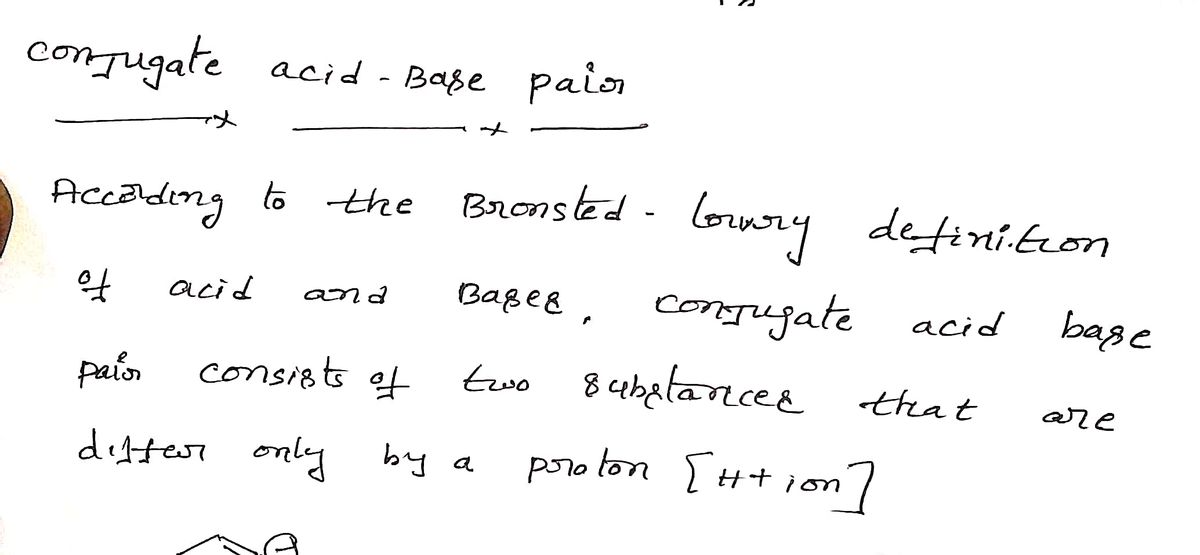 conjugate acid - Base pair
According to the Bronsted - lowry definition
of acid and Bases, conjugate acid base
pair consists of two substances that are
differ only by a proton [H+ ion]